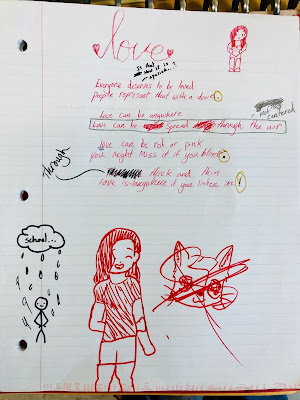 love
Is that
how it is
Everyone deserves to be loved
people represent that with a dove.
Love can be anywhere
- not centered
Love can be spread through the air
Love can be red or pink
you might miss it if you blink.
Through
thick and thin
love is anywhere if you listen in!
School...